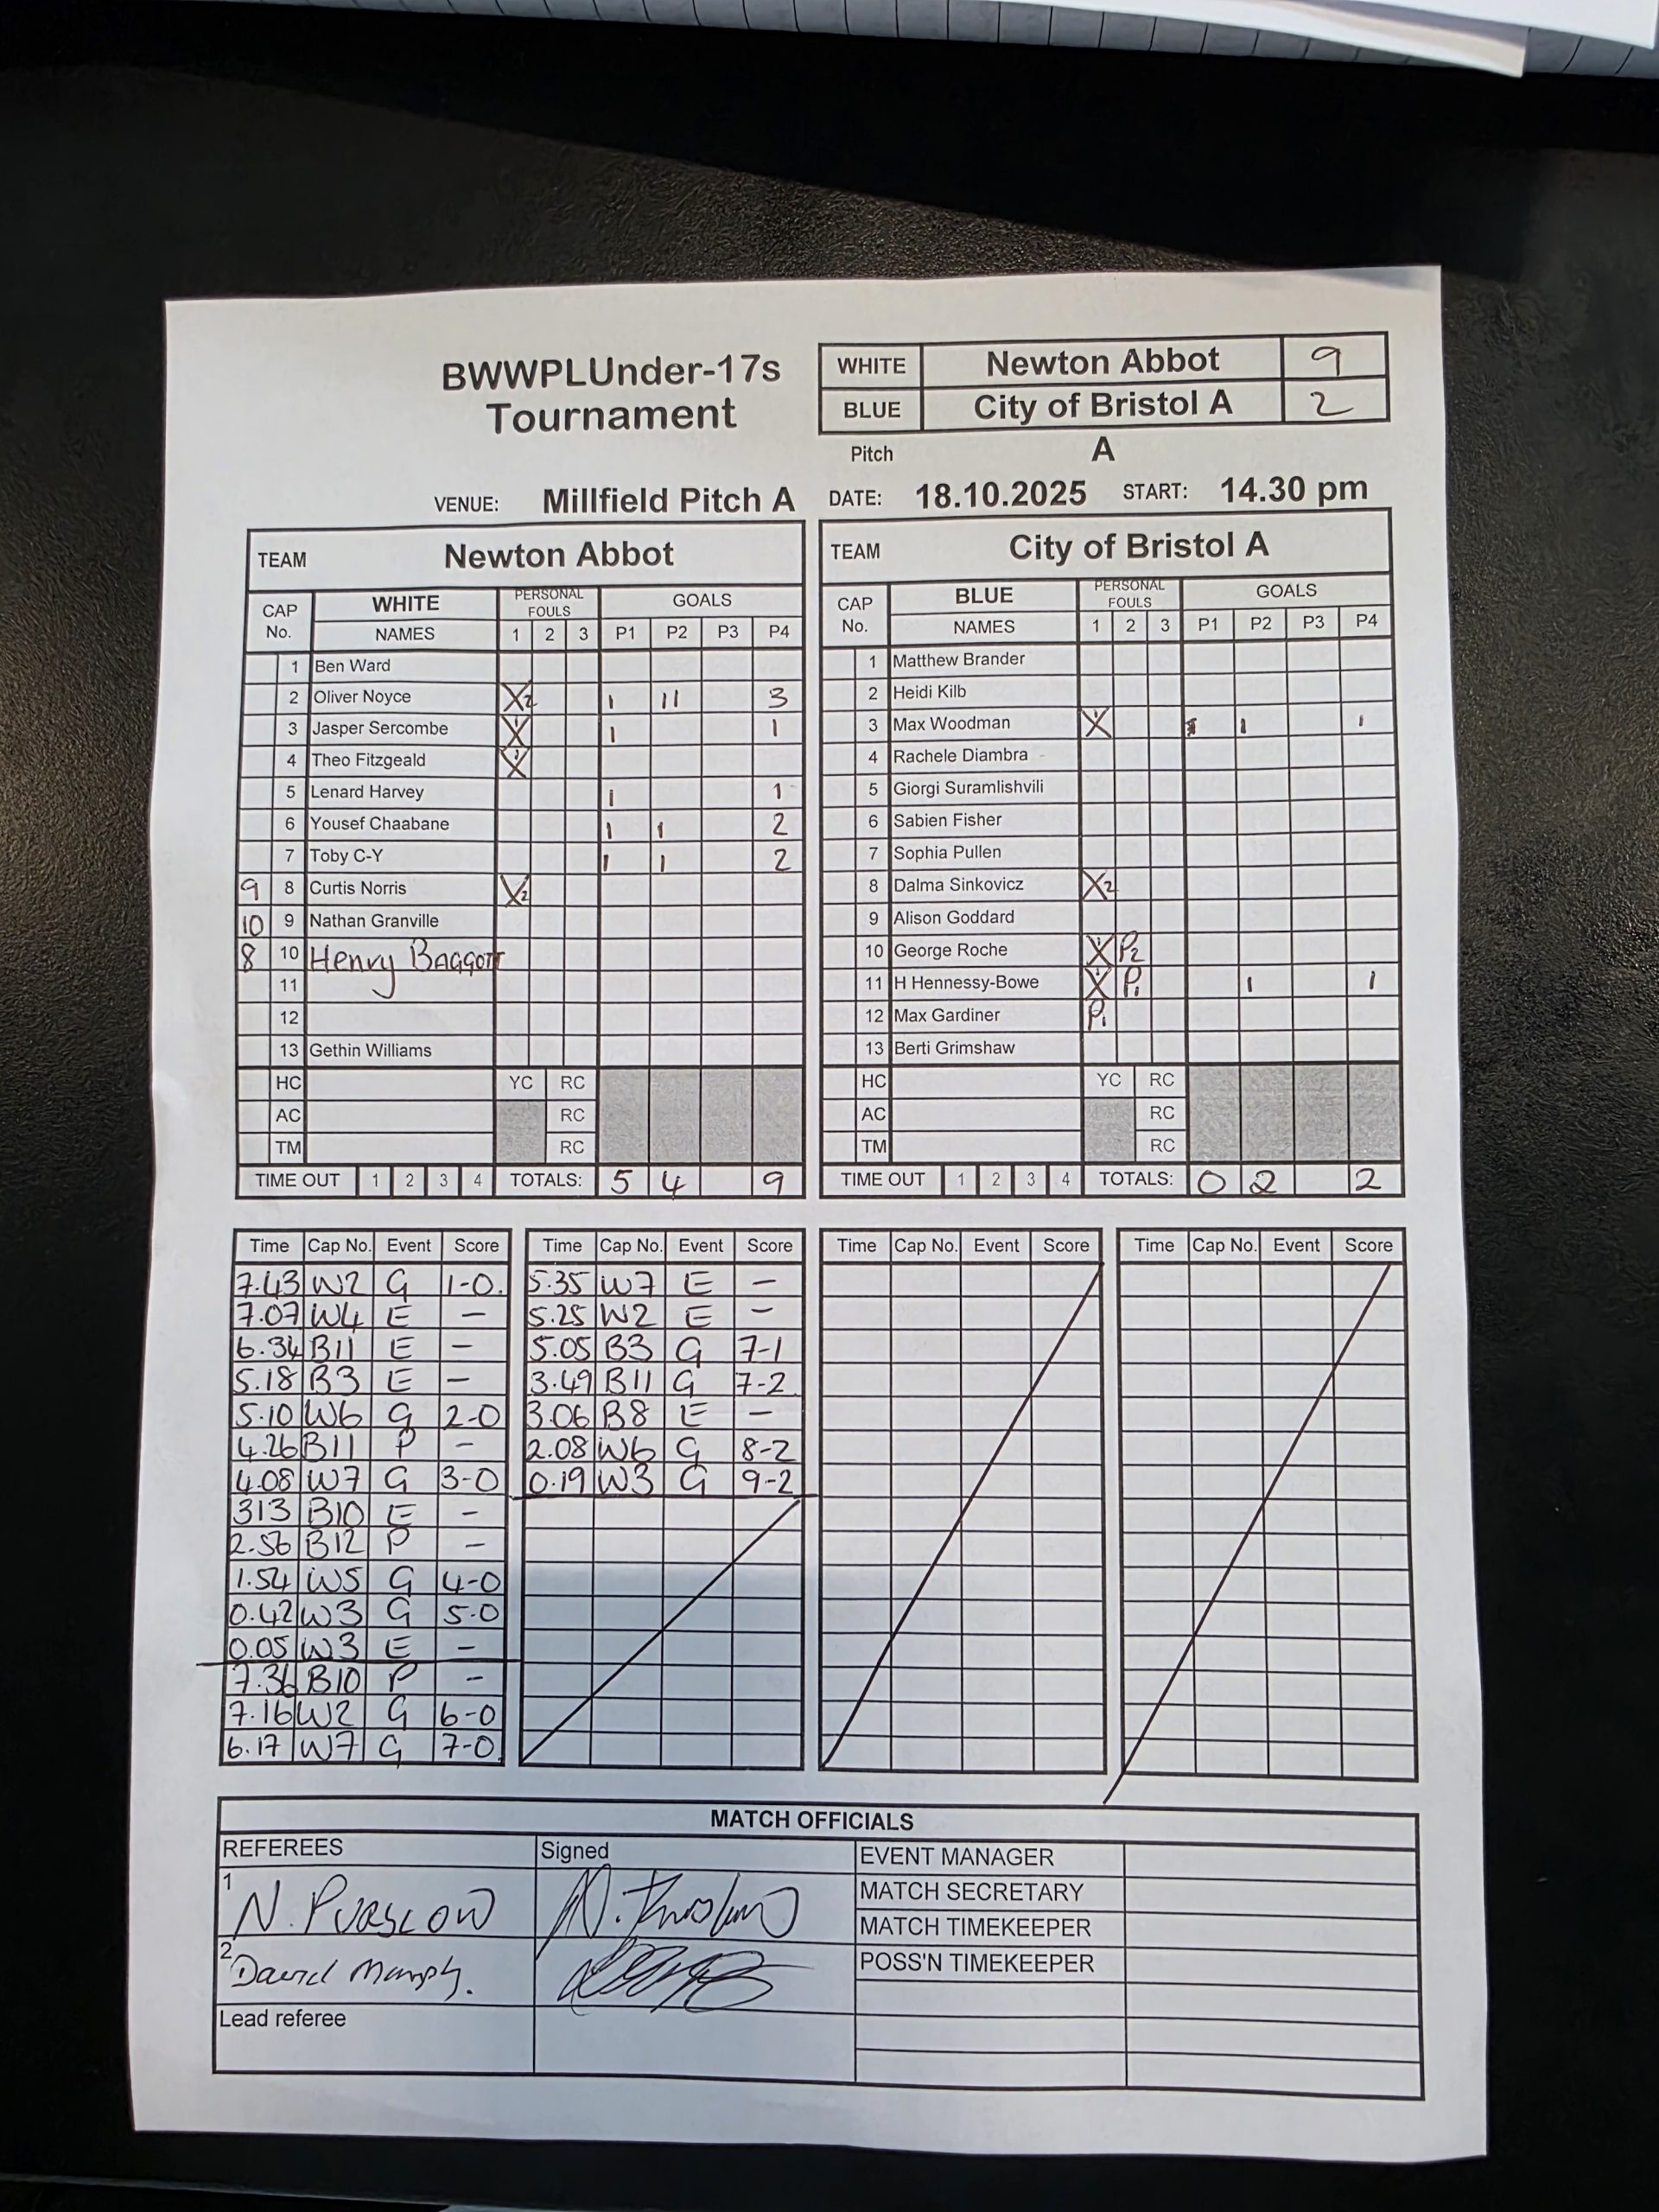 BWWPLUnder-17s
Tournament
WHITE Newton Abbot 9
BLUE City of Bristol A 2
Pitch A
VENUE: Millfield Pitch A DATE: 18.10.2025 START: 14.30 pm
TEAM Newton Abbot
CAP No. WHITE NAMES PERSONAL FOULS 1 2 3 GOALS P1 P2 P3 P4
1 Ben Ward
2 Oliver Noyce X2 1 11 3
3 Jasper Sercombe X1 1 1
4 Theo Fitzgeald X1
5 Lenard Harvey 1 1
6 Yousef Chaabane 1 1 2
7 Toby C-Y 1 1 2
9 8 Curtis Norris X2
10 9 Nathan Granville
8 10 Henry BAGGOTT
11
12
13 Gethin Williams
HC YC RC
AC RC
TM RC
TIME OUT 1 2 3 4 TOTALS: 5 4 9
TEAM City of Bristol A
CAP No. BLUE NAMES PERSONAL FOULS 1 2 3 GOALS P1 P2 P3 P4
1 Matthew Brander
2 Heidi Kilb
3 Max Woodman X1 1 1
4 Rachele Diambra
5 Giorgi Suramlishvili
6 Sabien Fisher
7 Sophia Pullen
8 Dalma Sinkovicz X2
9 Alison Goddard
10 George Roche X1 P2
11 H Hennessy-Bowe X1 P1 1 1
12 Max Gardiner P1
13 Berti Grimshaw
HC YC RC
AC RC
TM RC
TIME OUT 1 2 3 4 TOTALS: 0 2 2
Time Cap No. Event Score
7.43 W2 G 1-0
7.07 W4 E –
6.34 B11 E –
5.18 B3 E –
5.10 W6 G 2-0
4.26 B11 P –
4.08 W7 G 3-0
313 B10 E –
2.56 B12 P –
1.54 W5 G 4-0
0.42 W3 G 5-0
0.05 W3 E –
7.36 B10 P –
7.16 W2 G 6-0
6.17 W7 G 7-0
Time Cap No. Event Score
5.35 W7 E –
5.25 W2 E –
5.05 B3 G 7-1
3.49 B11 G 7-2
3.06 B8 E –
2.08 W6 G 8-2
0.19 W3 G 9-2
Time Cap No. Event Score
Time Cap No. Event Score
MATCH OFFICIALS
REFEREES Signed EVENT MANAGER
1 N. PURSLOW MATCH SECRETARY
MATCH TIMEKEEPER
2 David POSS'N TIMEKEEPER
Lead referee